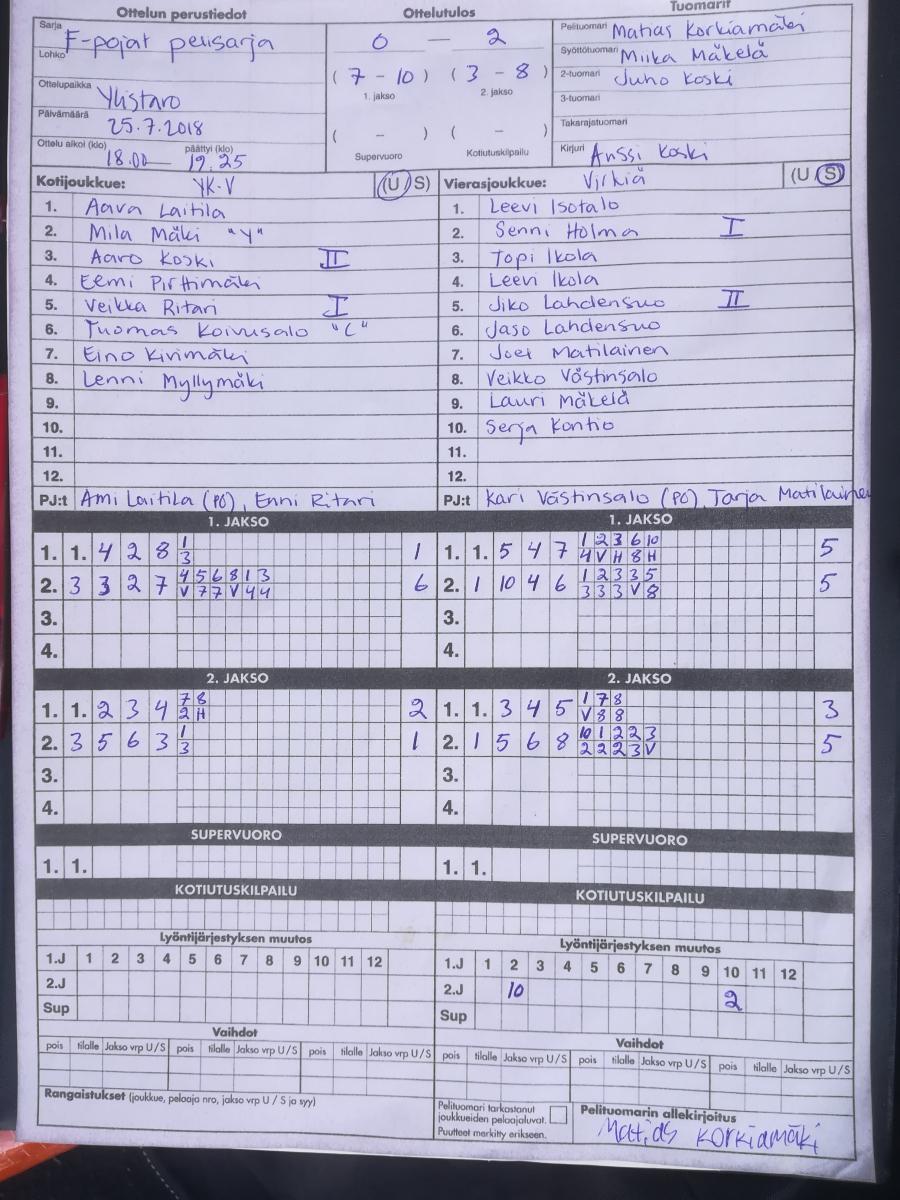 Ottelun perustiedot Ottelutulos Tuomarit
Sarja F-pojat pelisarja
Lohko
Ottelupaikka Ylistaro
Päivämäärä 25.7.2018
Ottelu alkoi (klo) 18.00 päättyi (klo) 19.25
0 — 2
( 7 - 10 ) ( 3 - 8 )
1. jakso 2. jakso
( - ) ( - )
Supervuoro Kotiutuskilpailu
Pelituomari Matias Korkiamäki
Syöttötuomari Miika Mäkelä
2-tuomari Juho Koski
3-tuomari
Takarajatuomari
Kirjuri Anssi Koski
Kotijoukkue: YK-V (U/S)
1. Aava Laitila
2. Mila Mäki "Y"
3. Aaro Koski II
4. Eemi Pirttimäki
5. Veikka Ritari I
6. Tuomas Koivusalo "C"
7. Eino Kivimäki
8. Lenni Myllymäki
9.
10.
11.
12.
PJ:t Ami Laitila (PÖ), Enni Ritari
Vierasjoukkue: Virkiä (U/S)
1. Leevi Isotalo
2. Senni Holma I
3. Topi Ikola
4. Leevi Ikola
5. Jiko Lahdensuo II
6. Jaso Lahdensuo
7. Joel Matilainen
8. Veikko Västinsalo
9. Lauri Mäkelä
10. Serja Kontio
11.
12.
PJ:t Kari Västinsalo (PÖ), Tarja Matilainen
1. JAKSO
1. 1. 4 2 8 1 1
3
2. 3 3 2 7 4 5 6 8 1 3 6
V 7 7 V 4 4
3.
4.
1. JAKSO
1. 1. 5 4 7 1 2 3 6 10 5
4 V H 8 H
2. 1 10 4 6 1 2 3 3 5 5
3 3 3 V 8
3.
4.
2. JAKSO
1. 1. 2 3 4 7 8 2
2 H
2. 3 5 6 3 1 1
3
3.
4.
2. JAKSO
1. 1. 3 4 5 1 7 8 3
V 8 8
2. 1 5 6 8 10 1 2 2 3 5
2 2 2 3 V
3.
4.
SUPERVUORO
1. 1.
SUPERVUORO
1. 1.
KOTIUTUSKILPAILU
KOTIUTUSKILPAILU
Lyöntijärjestyksen muutos
1.J 1 2 3 4 5 6 7 8 9 10 11 12
2.J
Sup
Lyöntijärjestyksen muutos
1.J 1 2 3 4 5 6 7 8 9 10 11 12
2.J 10 2
Sup
Vaihdot
pois tilalle Jakso vrp U/S pois tilalle Jakso vrp U/S pois tilalle Jakso vrp U/S
Vaihdot
pois tilalle Jakso vrp U/S pois tilalle Jakso vrp U/S pois tilalle Jakso vrp U/S
Rangaistukset (joukkue, pelaaja nro, jakso vrp U / S ja syy)
Pelituomari tarkastanut
joukkueiden pelaajaluvat.
Puutteet merkitty erikseen.
Pelituomarin allekirjoitus
Matias Korkiamäki